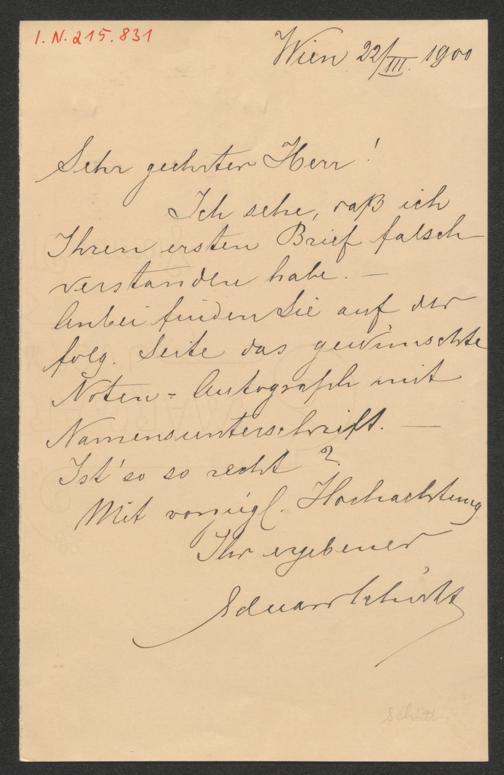 I.N.215.831
Wien 22/III. 1900
Sehr geehrter Herr!
Ich sehe, daß ich
Ihren ersten Brief falsch
verstanden habe. —
Anbei finden Sie auf der
folg. Seite das gewünschte
Noten-Autograph mit
Namensunterschrift. —
Ist's so recht?
Mit vorzügl. Hochachtung
Ihr ergebener
Eduard Schütt
Schütt